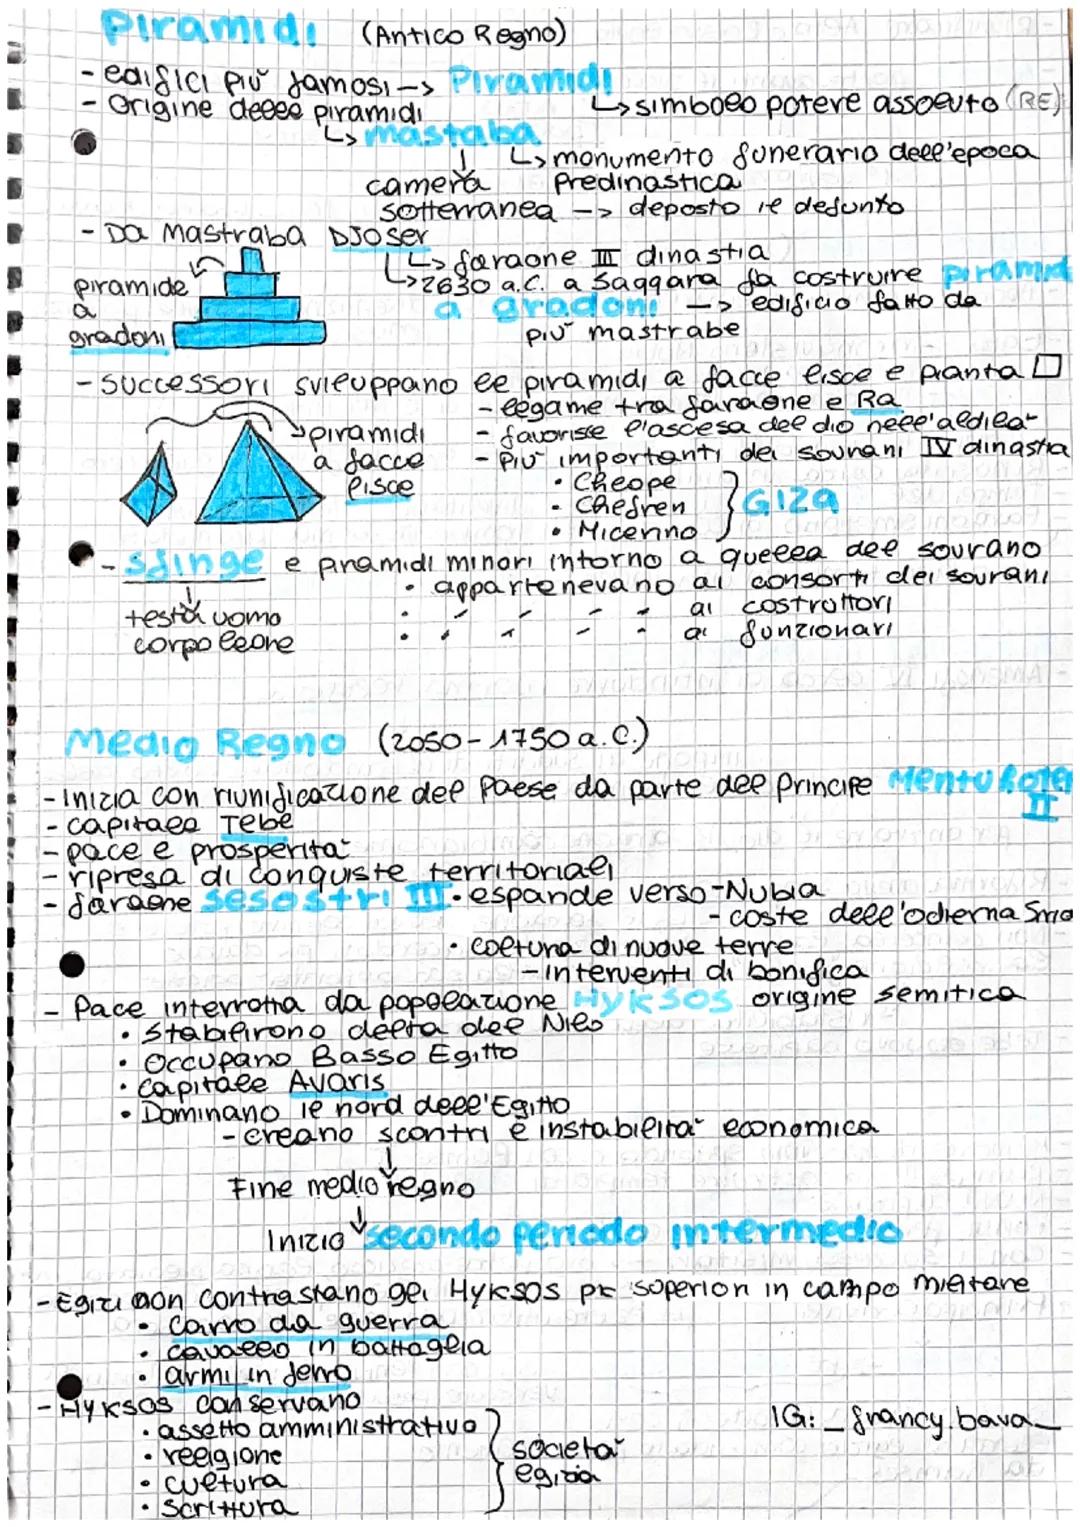 Piramidi (Antico Regno)
- edifici più famosi --> Piramidi
↳ simbolo potere assoluto (RE)
- Origine delle piramidi
↳ mastaba
↳ monumento funerario dell'epoca
Predinastica
camera
sotterranea --> deposto il defunto
- Da Mastraba DJoser
↳ faraone III dinastia
↳ 2630 a.C. a Saqqara fa costruire piramidi
a gradoni --> edificio fatto da
più mastrabe
piramide
a
gradoni
- Successori sviluppano le piramidi a facce lisce e pianta □
- legame tra faraone e Ra
- favorisse l'ascesa del dio nell'aldilà
- Più importanti dei sovrani IV dinastia
• Cheope
• Chefren
• Micerino
} GIZA
piramidi
a facce
lisce
- Sfinge e piramidi minori intorno a quella del sovrano
• appartenevano ai consorti dei sovrani
• " " " " ai costruttori
• " " " " ai funzionari
testa uomo
corpo leone
Medio Regno (2050 - 1750 a.C.)
- Inizia con riunificazione del Paese da parte del Principe Mentuhotep
II
- capitale Tebe
- pace e prosperità
- ripresa di conquiste territoriali
- faraone Sesostri III • espande verso - Nubia
- coste dell'odierna Siria
• coltura di nuove terre
- interventi di bonifica
- Pace interrotta da popolazione Hyksos origine semitica
• Stabilirono delta del Nilo
• Occupano Basso Egitto
• capitale Avaris
• Dominano il nord dell'Egitto
- creano scontri e instabilità economica
↓
Fine medio regno
↓
Inizio secondo periodo intermedio
- Egizi non contrastano gli Hyksos pk superiori in campo militare
• carro da guerra
• cavallo in battaglia
• armi in ferro
- Hyksos conservano
• assetto amministrativo
• religione
• cultura
• scrittura
} società
egizia
IG: _francy.bava_